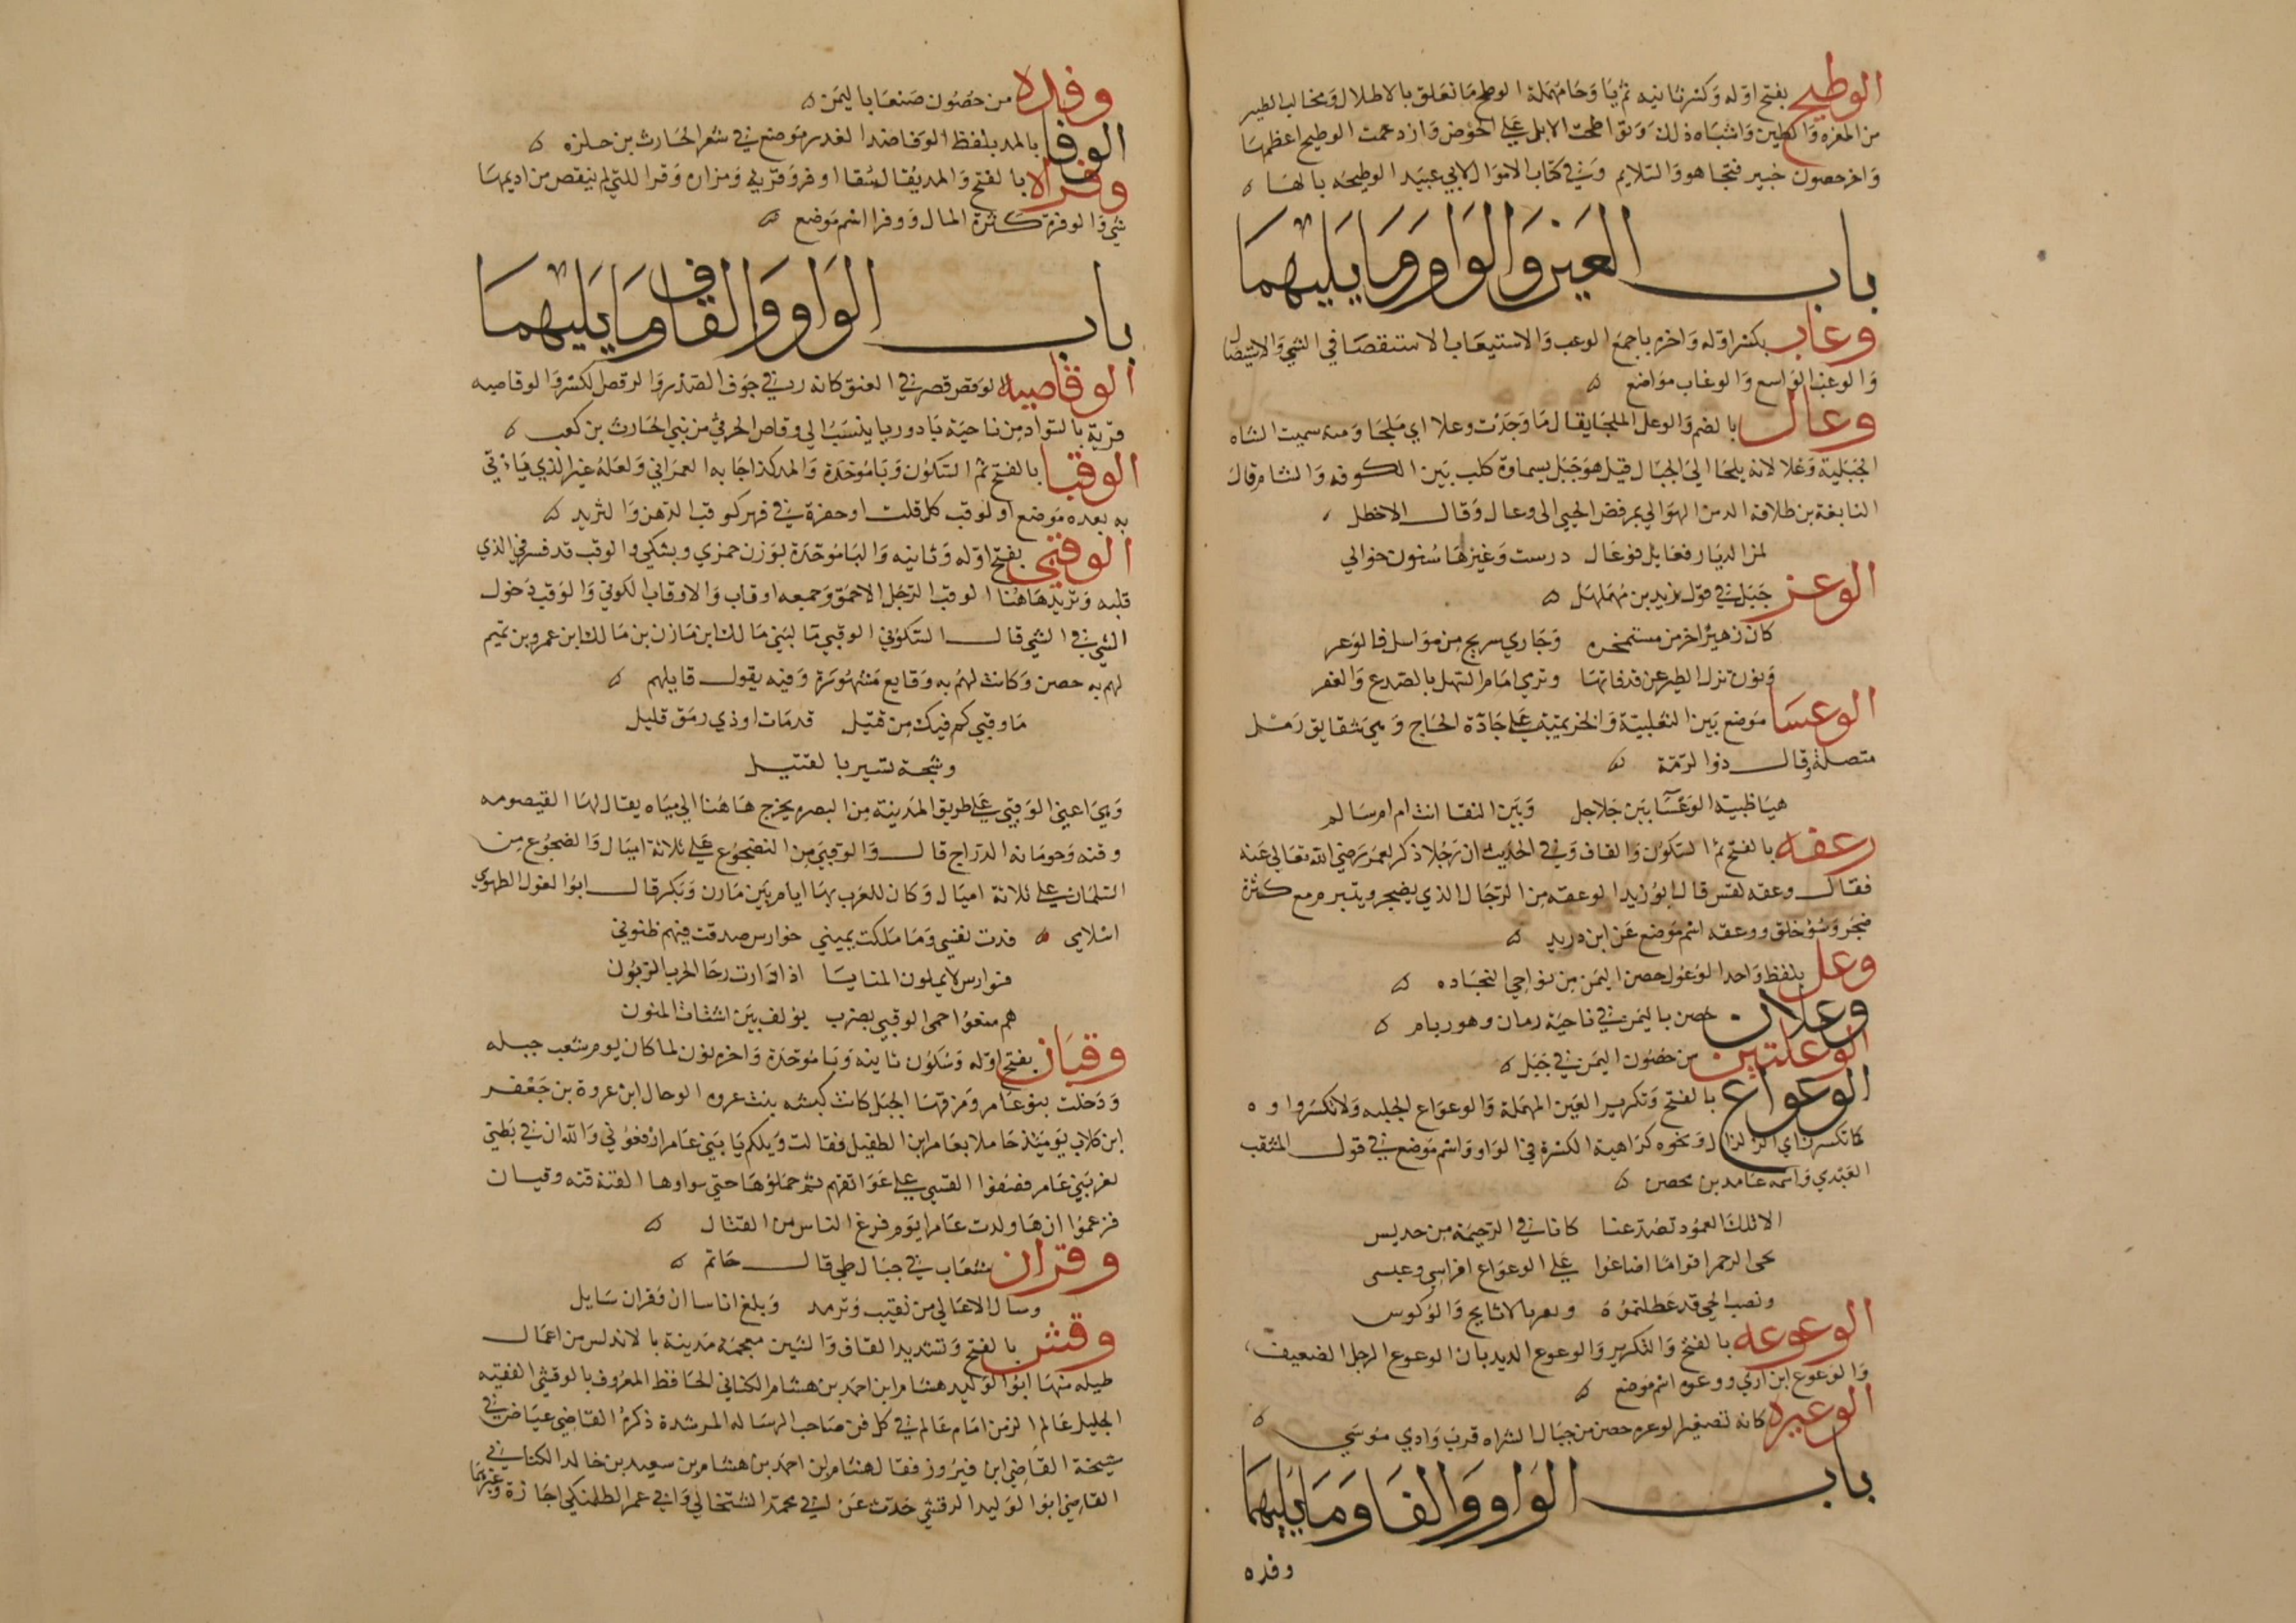 الوطيح بفتح اوله وكسر ثانيه ثم يا وحا مهملة الوطح ما تعلق بالاظلال ومخالب الطير
من المغره والطين واشباه ذلك وتواطحت الابل على الحوض وازدحمت الوطيح اعظمها
واخر حصون خيبر فتحا هو والسلايم وفي كتاب الاموال لابي عبيد الوطيحه بالها
باب العين والواو وما يليهما
وعاب بكسر اوله واخره با جمع الوعب والاستيعاب الاستقصا في الشي والاستيصال
والوعب الواسع والوعاب مواضع
وعال بالضم والوعل الملجا يقال ما وجدت وعلا اي ملجا ومنه سميت الشاه
الجبلية وعلا لانه يلجا الى الجبال قيل هو جبل بسماوة كلب بين الكوفه والشام قال
النابغة بن طلاقه الدمن الهوالي بمرفض الحبي الى وعال وقال الاخطل
لمن الديار فعابل فوعال درست وغيرها سنون خوالي
الوعر جبل في قول يزيد بن مهلهل
كان زهيرا خر من مستمخره وجاري سريج من مواسل فالوعر
وبون تزل الطير عن قدفاتها وترى امام السهل بالصدع والغفر
الوعسا موضع بين الثعلبية والخزيمية على جادة الحاج وهي شقايق رمل
متصلة وقال ذوا الرمة
هيا ظبية الوعسا بين جلاجل وبين النقا انت ام ام سالم
وعقه بالفتح ثم السكون والقاف وفي الحديث ان رجلا ذكر لعمر رضي الله تعالى عنه
فقال وعقه لقس قال ابو زيد الوعقه من الرجال الذي يضجر ويتبرم مع كثرة
ضجر وسؤ خلق ووعقه اسم موضع عن ابن دريد
وعل بلفظ واحد الوعول حصن اليمن من نواحي النجاده
وعلان حصن باليمن في ناحية رمان وهو ريام
الوعلتين من حصون اليمن في جبل
الوعواع بالفتح وتكرير العين المهملة والوعواع الجلبه ولا تكسر واوه
كما تكسر زاي الزلزال ونحوه كراهية الكسرة في الواو واسم موضع في قول المثقب
العبدي واسمه عامد بن محصن
الا تلك العمود تصد عنا كانا في الرحيمة من حديس
لحى الرحمن اقواما اضاعوا على الوعواع افراسي وعيسى
ونصب الحي قد عطلتموه ونعر بالاثايج والوكوس
الوعوعه بالفتح والتكرير والوعوع الديدبان الوعوع الرجل الضعيف
والوعوع ابن اوي ووعوعه اسم موضع
الوعيره كانه تصغير الوعره حصن من جبال الشراه قرب وادي موسى
باب الواو والفا وما يليهما
وفده
وفده من حصون صنعا باليمن
الوفا بالمد بلفظ الوفا ضد الغدر موضع في شعر الحارث بن حلزه
وفرا بالفتح والمد يقال سقا اوفر وقربه ومزاده وفرا للتي لم ينقص من اديمها
شي والوفره كثرة المال ووفرا اسم موضع
باب الواو والقاف وما يليهما
الوقاصيه الوقص قصر في العنق كانه رد في جوف الصدر والوقص لكسر والوقاصيه
قرية بالسواد من ناحية بادوريا ينسب الى وقاص الحرمي من بني الحارث بن كعب
الوقبا بالفتح ثم السكون وبا موحدة والمد كذا جا به العمراني ولعله غير الذي ياتي
به بعده موضع او لوقب كل قلت او حفرة في فهر كوقب الدهن والثريد
الوقبي بفتح اوله وثانيه والبا موحدة بوزن جمزى وبشكى والوقب قد فسر في الذي
قبله ونريد هاهنا الوقب الرجل الاحمق وجمعه اوقاب والاوقاب الكوي والوقب دخول
الشي في الشي قال السكوني الوقبي ما لبني مالك بن مازن بن مالك ابن عمرو بن تميم
لهم به حصن وكانت لهم به وقايع مشهورة وفيه يقول قايلهم
ما وقبي كم فيك من قتيل قد مات او ذي رمق قليل
وشجة تسير بالفتيل
وهي اعني الوقبي على طريق المدينة من البصره يخرج هاهنا الى مياه يقال لها القيصومه
وقنه وحومانه الدراج قال والوقبي من الضجوع على ثلاثة اميال والضجوع من
السلمان على ثلاثة اميال وكان للعرب بها ايام بين مازن وبكر قال ابوا الغول الطهوي
اسلامي فدت نفسي وما ملكت يميني فوارس صدقت فيهم ظنوني
فوارس لا يملون المنايا اذا دارت رحا الحرب الزبون
هم منعوا حمى الوقبي بضرب يولف بين اشتات المنون
وقبان بفتح اوله وسكون ثانيه وبا موحدة واخره نون لما كان يوم شعب جبله
ودخلت بنو عامر ومن معها الجبل كانت كبشه بنت عروه الرحال ابن عروة بن جعفر
ابن كلاب يوميذ حاملا بعامر ابن الطفيل فقالت ويلكم يا بني عامر ارفعوني والله ان في بطني
لعز بني عامر فصفوا القسي على عواتقهم ثم حملوها حتى بواوها القنة قنه وقبان
فزعموا انها ولدت عامرا يوم فرغ الناس من القتال
وقران شعاب في جبال طي قال حاتم
وسال الاعالي من نقيب وثرمد وبلغ اناسا ان وقران سايل
وقش بالفتح وتشديد القاف والشين معجمة مدينة بالاندلس من اعمال
طليطله منها ابوا الوليد هشام ابن احمد بن هشام الكناني الحافظ المعروف بالوقشي الفقيه
الجليل عالم الزمن امام عالم في كل فن صاحب الرساله المرشدة ذكره القاضي عياض في
شيخة القاضي ابن فيروز فقال هشام ابن احمد بن هشام بن سعيد بن خالد الكناني
القاضي ابوا الوليد الوقشي حدث عن ابي محمد الشنتجالي وابي عمر الطلمنكي اجازة وغيرهما